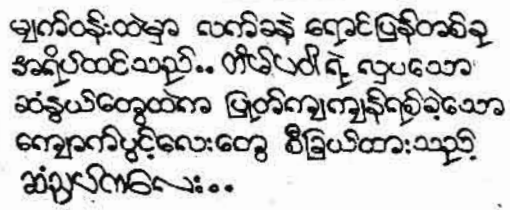 မျက်ဝန်းထဲမှာ လက်ခနဲ ရောင်ပြန်တစ်ခု
အရိပ်ထင်သည်.. တိမ်ပဝါရဲ့ လှပသော
ဆံနွယ်တွေထဲက ပြုတ်ကျကျန်ရစ်ခဲ့သော
ကျောက်ပွင့်လေးတွေ စီခြယ်ထားသည့်
ဆံညှပ်ကလေး..